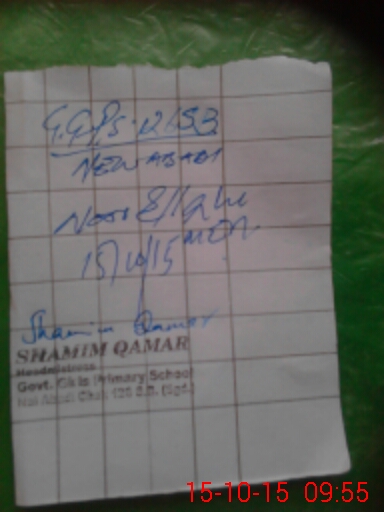 G.G.P/S. 12/SB
NEW ABADI
Noor Ellahi
MEA
15/10/15
Shamim Qamar
SHAMIM QAMAR
Headmistress
Govt. Girls Primary School
Nai Abadi Chak 12 S.B. (Sgd.)
15-10-15 09:55